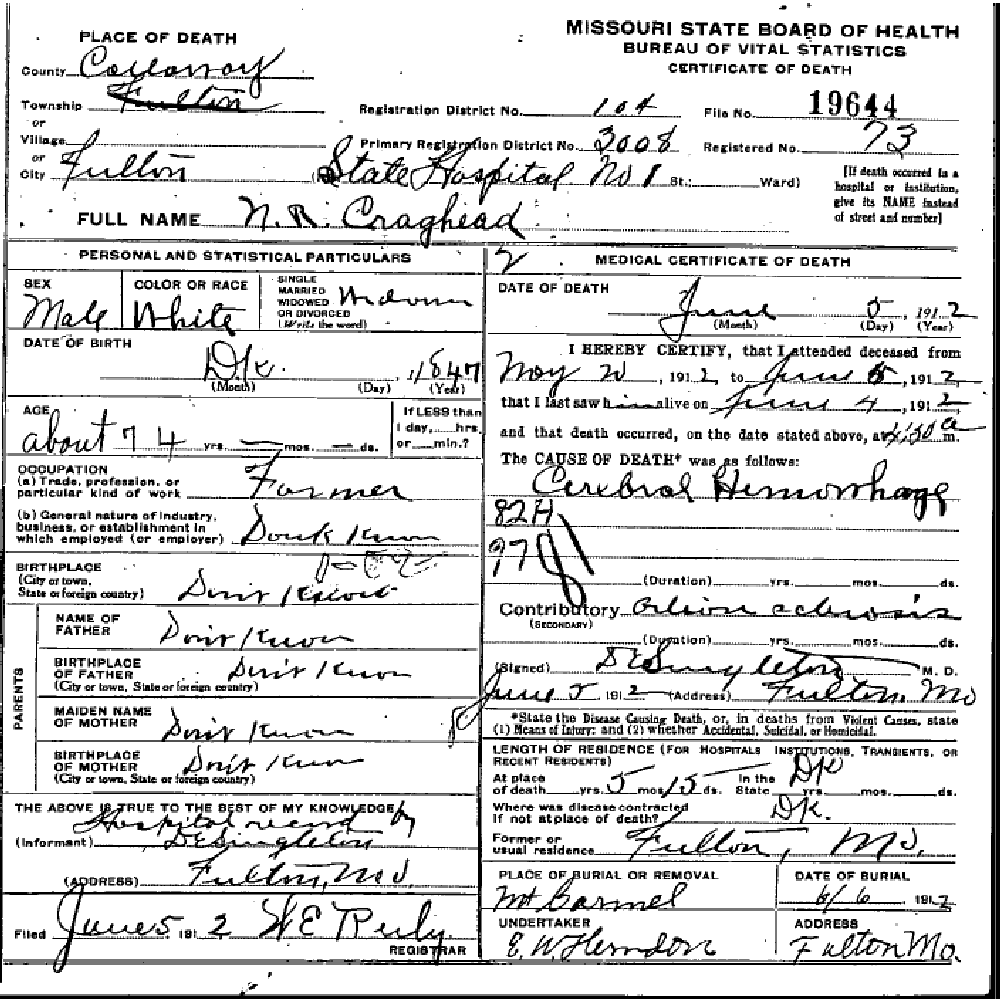 MISSOURI STATE BOARD OF HEALTH
BUREAU OF VITAL STATISTICS
CERTIFICATE OF DEATH
PLACE OF DEATH
County Callaway
Township Fulton
or
Village
or
City Fulton
Registration District No. 104 File No. 19644
Primary Registration District No. 3008 Registered No. 73
State Hospital No 1 St.; Ward)
[If death occurred in a hospital or institution, give its NAME instead of street and number]
FULL NAME N. R. Craghead
PERSONAL AND STATISTICAL PARTICULARS
SEX
Male
COLOR OR RACE
White
SINGLE
MARRIED
WIDOWED
OR DIVORCED
(Write the word)
Widower
DATE OF BIRTH
Dk. , 1847
(Month) (Day) (Year)
AGE
about 74 yrs. — mos. — ds.
If LESS than
1 day, hrs.
or min.?
OCCUPATION
(a) Trade, profession, or
particular kind of work Farmer
(b) General nature of industry,
business, or establishment in
which employed (or employer) Dont Know
BIRTHPLACE
(City or town,
State or foreign country) Dont Know
PARENTS
NAME OF
FATHER Dont Know
BIRTHPLACE
OF FATHER Dont Know
(City or town, State or foreign country)
MAIDEN NAME
OF MOTHER Dont Know
BIRTHPLACE
OF MOTHER Dont Know
(City or town, State or foreign country)
THE ABOVE IS TRUE TO THE BEST OF MY KNOWLEDGE
Hospital record by
(Informant) D E Singleton
(ADDRESS) Fulton, Mo
Filed June 5 191 2 W E
REGISTRAR
2 MEDICAL CERTIFICATE OF DEATH
DATE OF DEATH
June 5, 1912
(Month) (Day) (Year)
I HEREBY CERTIFY, that I attended deceased from
Nov 20, 1912, to June 5, 1912,
that I last saw him alive on June 4, 1912,
and that death occurred, on the date stated above, at 4:30 a m.
The CAUSE OF DEATH* was as follows:
Cerebral Hemorrhage
82A
97
(Duration) yrs. mos. ds.
Contributory sclerosis
(SECONDARY)
(Duration) yrs. mos. ds.
(Signed) D E Singleton M. D.
June 5 1912 (Address) Fulton, Mo
*State the Disease Causing Death, or, in deaths from Violent Causes, state
(1) Means of Injury; and (2) whether Accidental, Suicidal, or Homicidal.
LENGTH OF RESIDENCE (FOR HOSPITALS INSTITUTIONS, TRANSIENTS, OR
RECENT RESIDENTS)
At place
of death yrs. 5 mos. 15 ds. In the
State DK yrs. mos. ds.
Where was disease contracted
if not at place of death? DK.
Former or
usual residence Fulton, Mo.
PLACE OF BURIAL OR REMOVAL
Mt Carmel
DATE OF BURIAL
6/6 1912
UNDERTAKER
E. W. Herndon
ADDRESS
Fulton Mo.